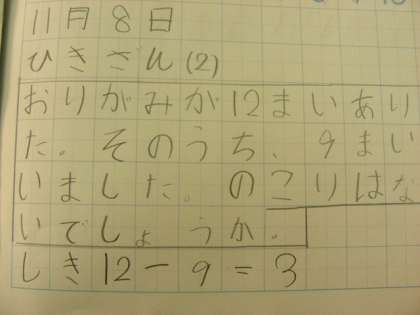 11月8日
ひきざん(2)
おりがみが12まいあり
た。そのうち、9まい
いました。のこりはな
いでしょうか。
しき12-9=3